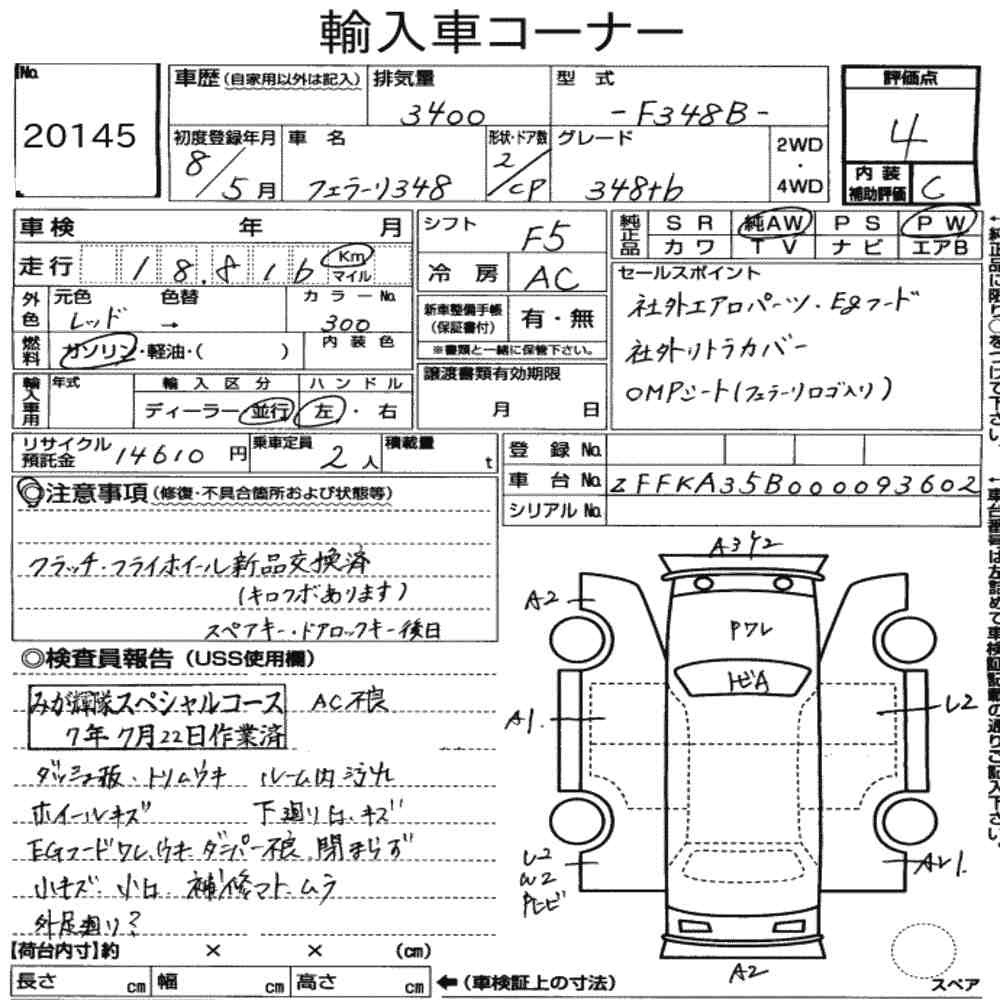 輸入車コーナー
No.
20145
車歴 (自家用以外は記入)
排気量
3400
型 式
- F348B -
評価点
4
初度登録年月
8/5月
車 名
フェラーリ348
形状・ドア数
2/CP
グレード
348tb
2WD
・
4WD
内 装
補助評価
C
車検 年 月
走行 18.816 Km
マイル
外色
元色
レッド
色替
→
カ ラ ー No.
300
燃料
ガソリン・軽油・( )
内 装 色
輸入車用
年式
輸 入 区 分
ディーラー・並行
ハ ン ド ル
左・右
シフト
F5
冷 房
AC
新車整備手帳
(保証書付)
有・無
※書類と一緒に保管下さい。
譲渡書類有効期限
月 日
純正品
S R 純AW P S P W
カ ワ T V ナ ビ エアB
セールスポイント
社外エアロパーツ・Egフード
社外リトラカバー
OMPシート(フェラーリロゴ入り)
←純正品に限り○をつけて下さい。
リサイクル
預託金
14610 円
乗車定員
2 人
積載量
t
登 録 No.
車 台 No.
ZFFKA35B000093602
シリアル No.
←車台番号は左詰めで車検証記載の通りご記入下さい。
◎注意事項 (修復・不具合箇所および状態等)
クラッチ・フライホイール新品交換済
(キロクボあります)
スペアキー・ドアロックキー後日
◎検査員報告 (USS使用欄)
みが輝隊スペシャルコース
7年7月22日作業済
AC不良
ダッシュ板・トリムウキ ルーム内汚れ
ホイールキズ 下廻り凹、キズ
EGフードワレ、ウキ ダンパー不良、閉まらず
小キズ 小凹 補修マト、ムラ
外足廻り?
A3 Y2
A2
Pワレ
トビA
A1
U2
U2
W2
PEビ
AU1
A2
スペア
【荷台内寸】約 × × (cm)
長さ cm 幅 cm 高さ cm ←(車検証上の寸法)